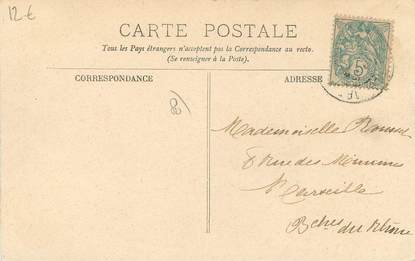 12-€
CARTE POSTALE
Tous les Pays étrangers n'acceptent pas la Correspondance au recto.
(Se renseigner à la Poste).
CORRESPONDANCE
ADRESSE
5
Mademoiselle
8 Rue des Minimes
Marseille
Bches du Rhône